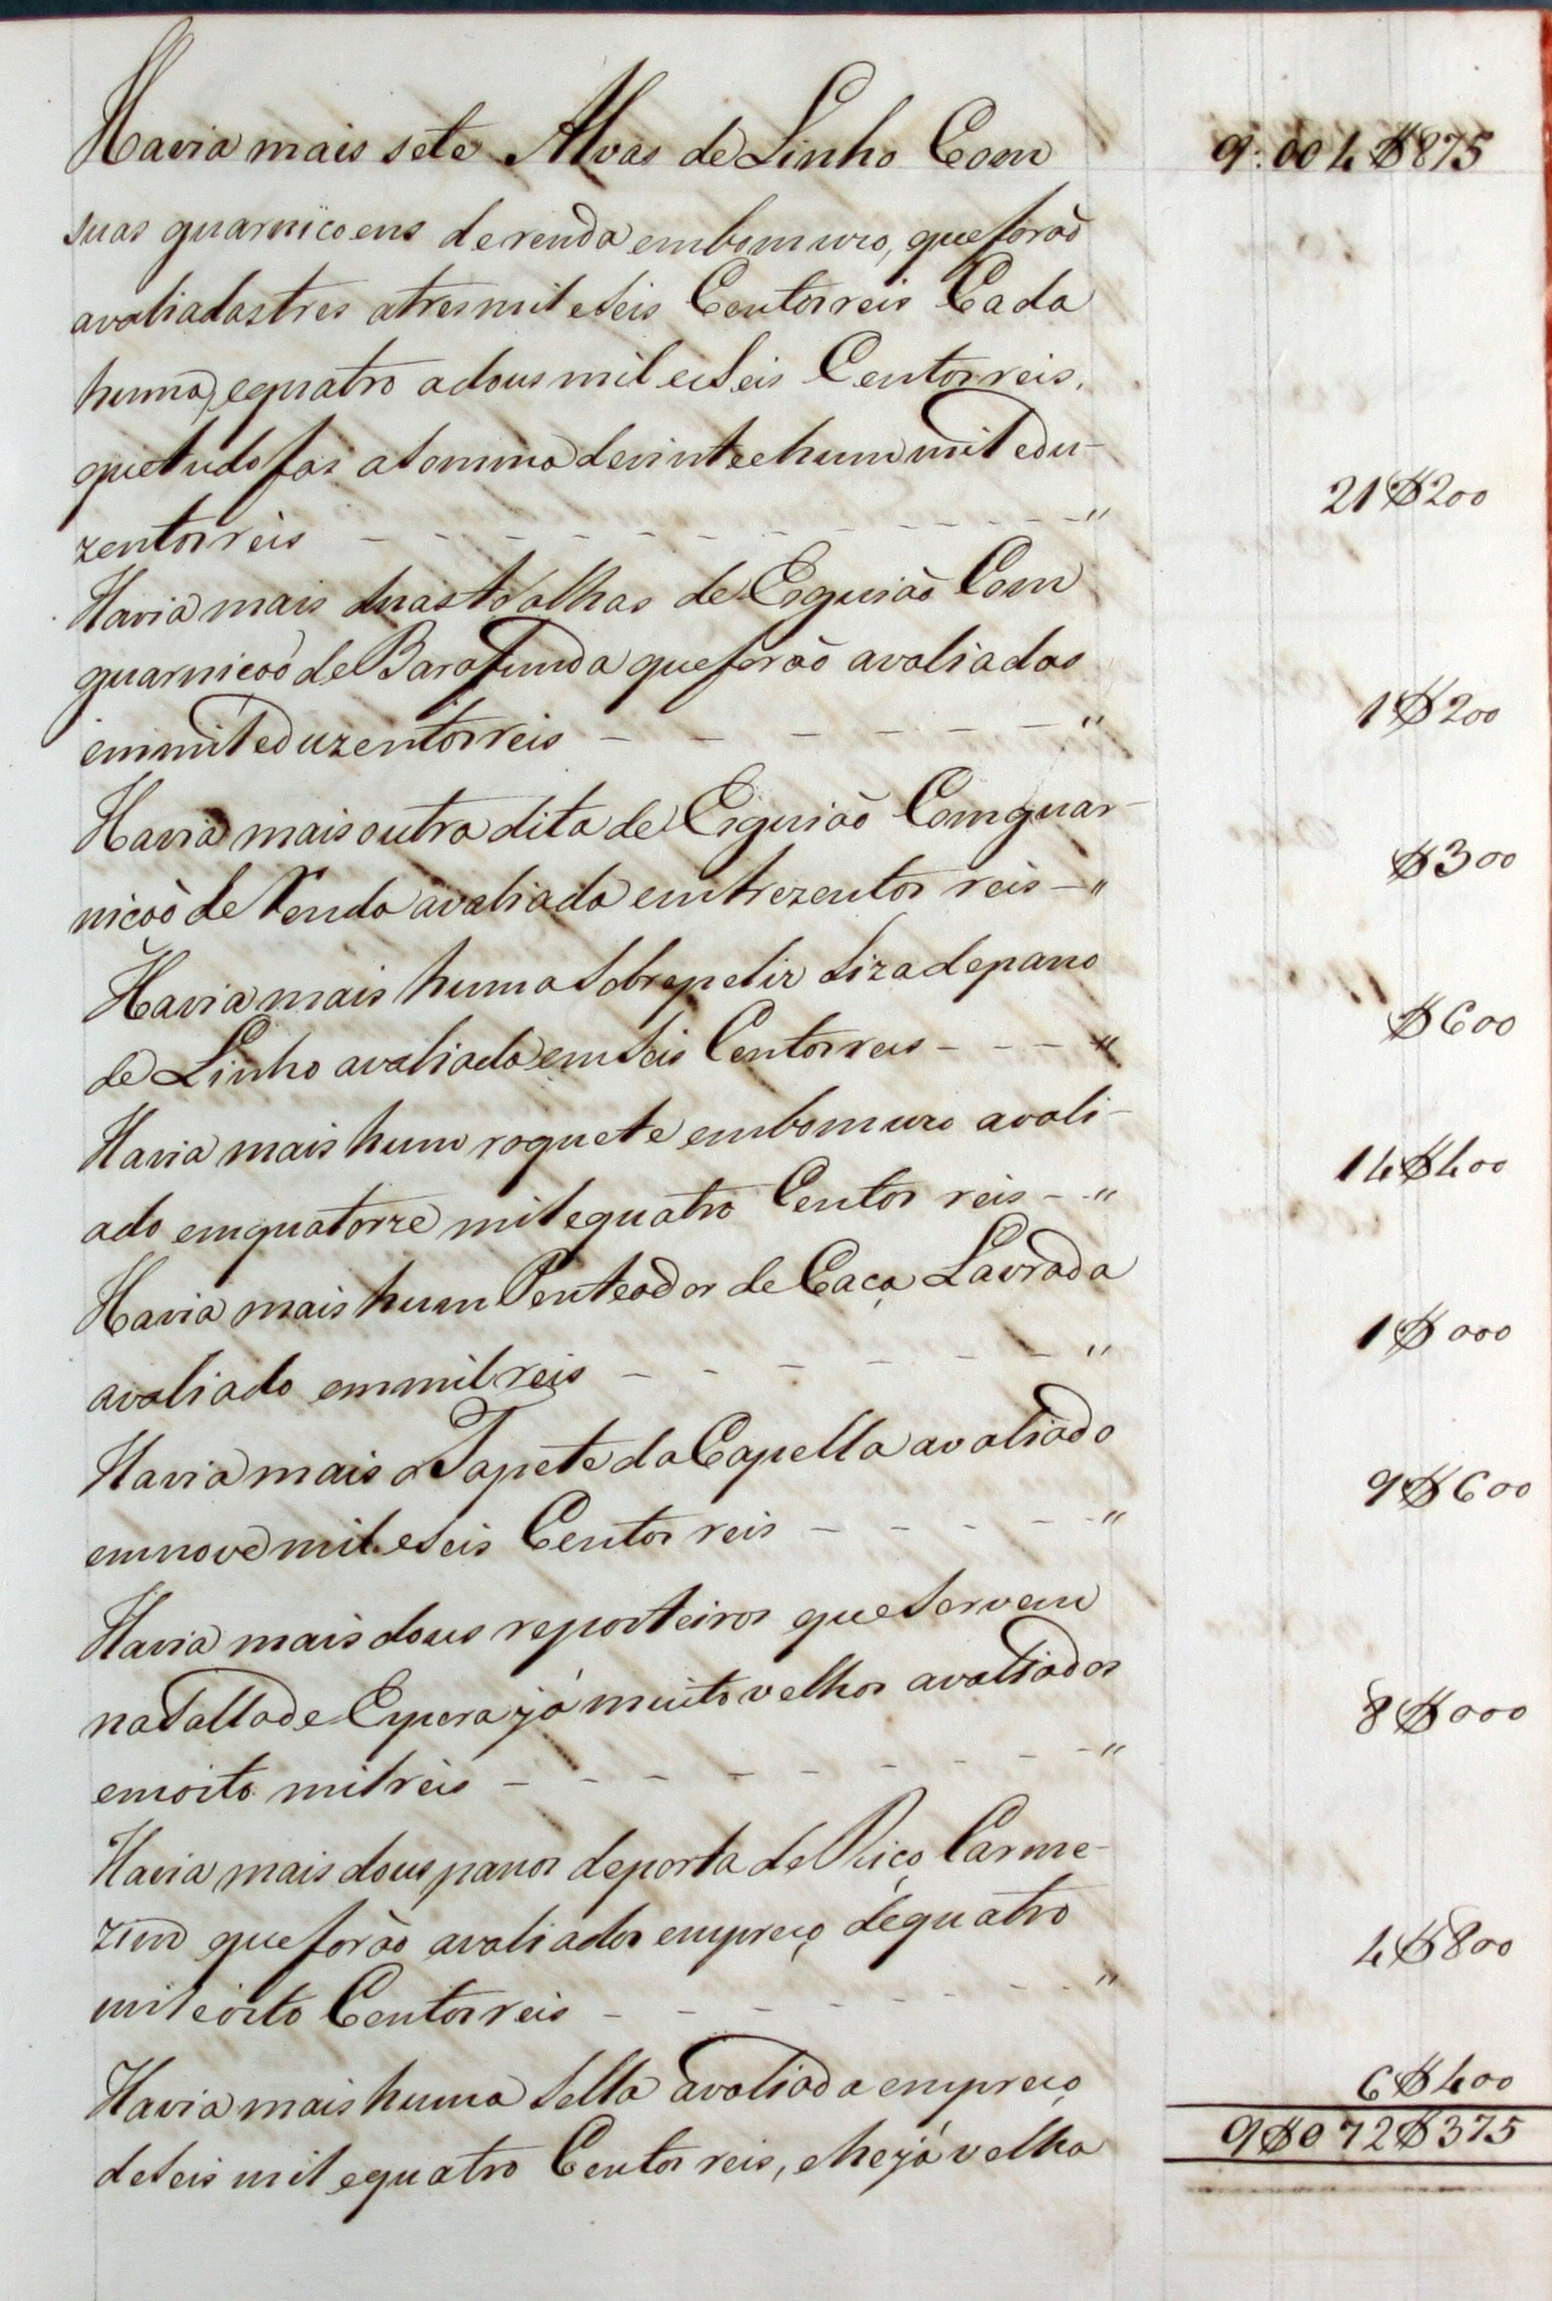 Havia mais sete Alvas de Linho Com 9:004$875
suas guarnicoens de renda em bom uzo, que forão
avaliadas tres a tres mil e seis Centos reis Cada
huma, e quatro a dous mil e Seis Centos reis,
que tudo fas a Somma de vinte e hum mil e du-
zentos reis - - - - - - - - - - - " 21$200
Havia mais duas toalhas de Esguião Com
guarnicaõ de Barafunda que forão avaliadas
em mil e duzentos reis - - - - - - - " 1$200
Havia mais outra dita de Esguião Com guar-
nicaõ de Renda avaliada em trezentos reis - " $300
Havia mais huma Sobrepeliz Liza de pano
de Linho avaliada em Seis Centos reis - - - " $600
Havia mais hum roquete em bom uzo avali-
ado em quatorze mil e quatro Centos reis - - " 14$400
Havia mais hum Penteador de Caça Lavrada
avaliado em mil reis - - - - - - " 1$000
Havia mais o Tapete da Capella avaliado
em nove mil e Seis Centos reis - - - - - " 9$600
Havia mais dous reposteiros que Servem
na Salla de Espera já muito velhos avaliados
em oito mil reis - - - - - - - - - " 8$000
Havia mais dous panos de porta de Riço Carme-
zim que forão avaliados em preço de quatro
mil e oito Centos reis - - - - - - - " 4$800
Havia mais huma Sella avaliada em preço 6$400
de Seis mil e quatro Centos reis, e he já velha 9$072$375